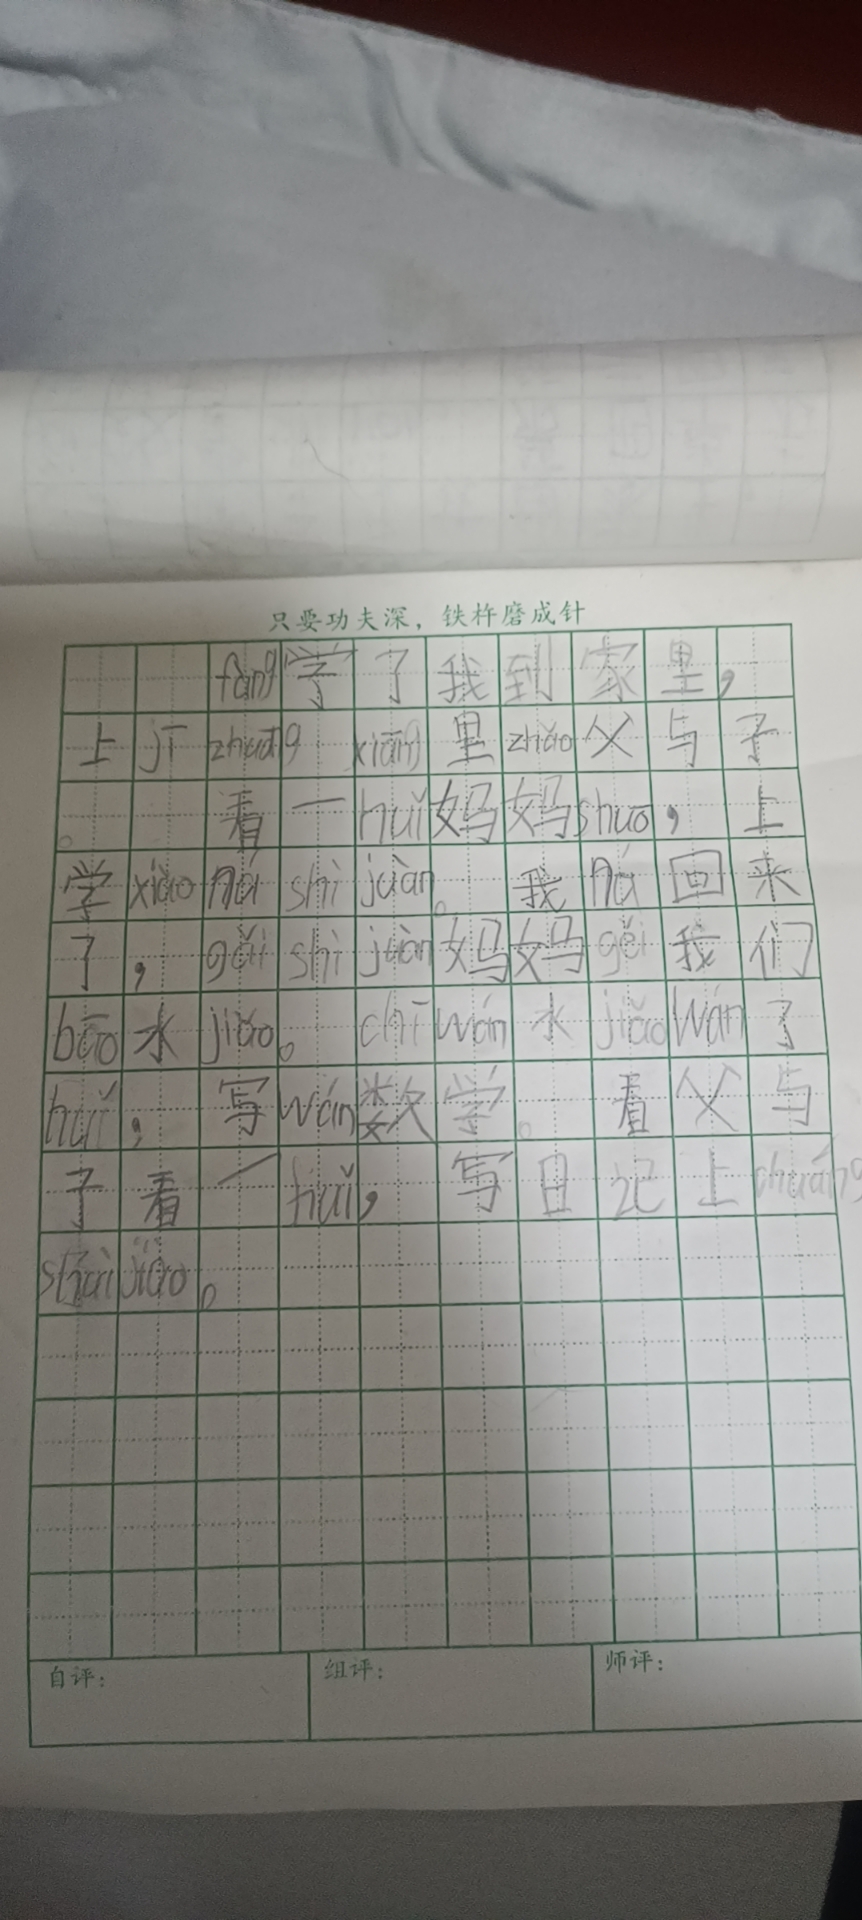 只要功夫深，铁杵磨成针
fàng学了我到家里，
上jī zhuāng xiāng里zhǎo父与子
。看一huǐ妈妈shuō，上
学xiào ná shì juàn。我ná回来
了，gǎi shì juàn妈妈gěi我们
bāo水jiǎo。chī wán水jiǎo wán了
huǐ，写wán数学。看父与
子看一huǐ，写日记上chuáng
shuì jiào。
自评： 组评： 师评：